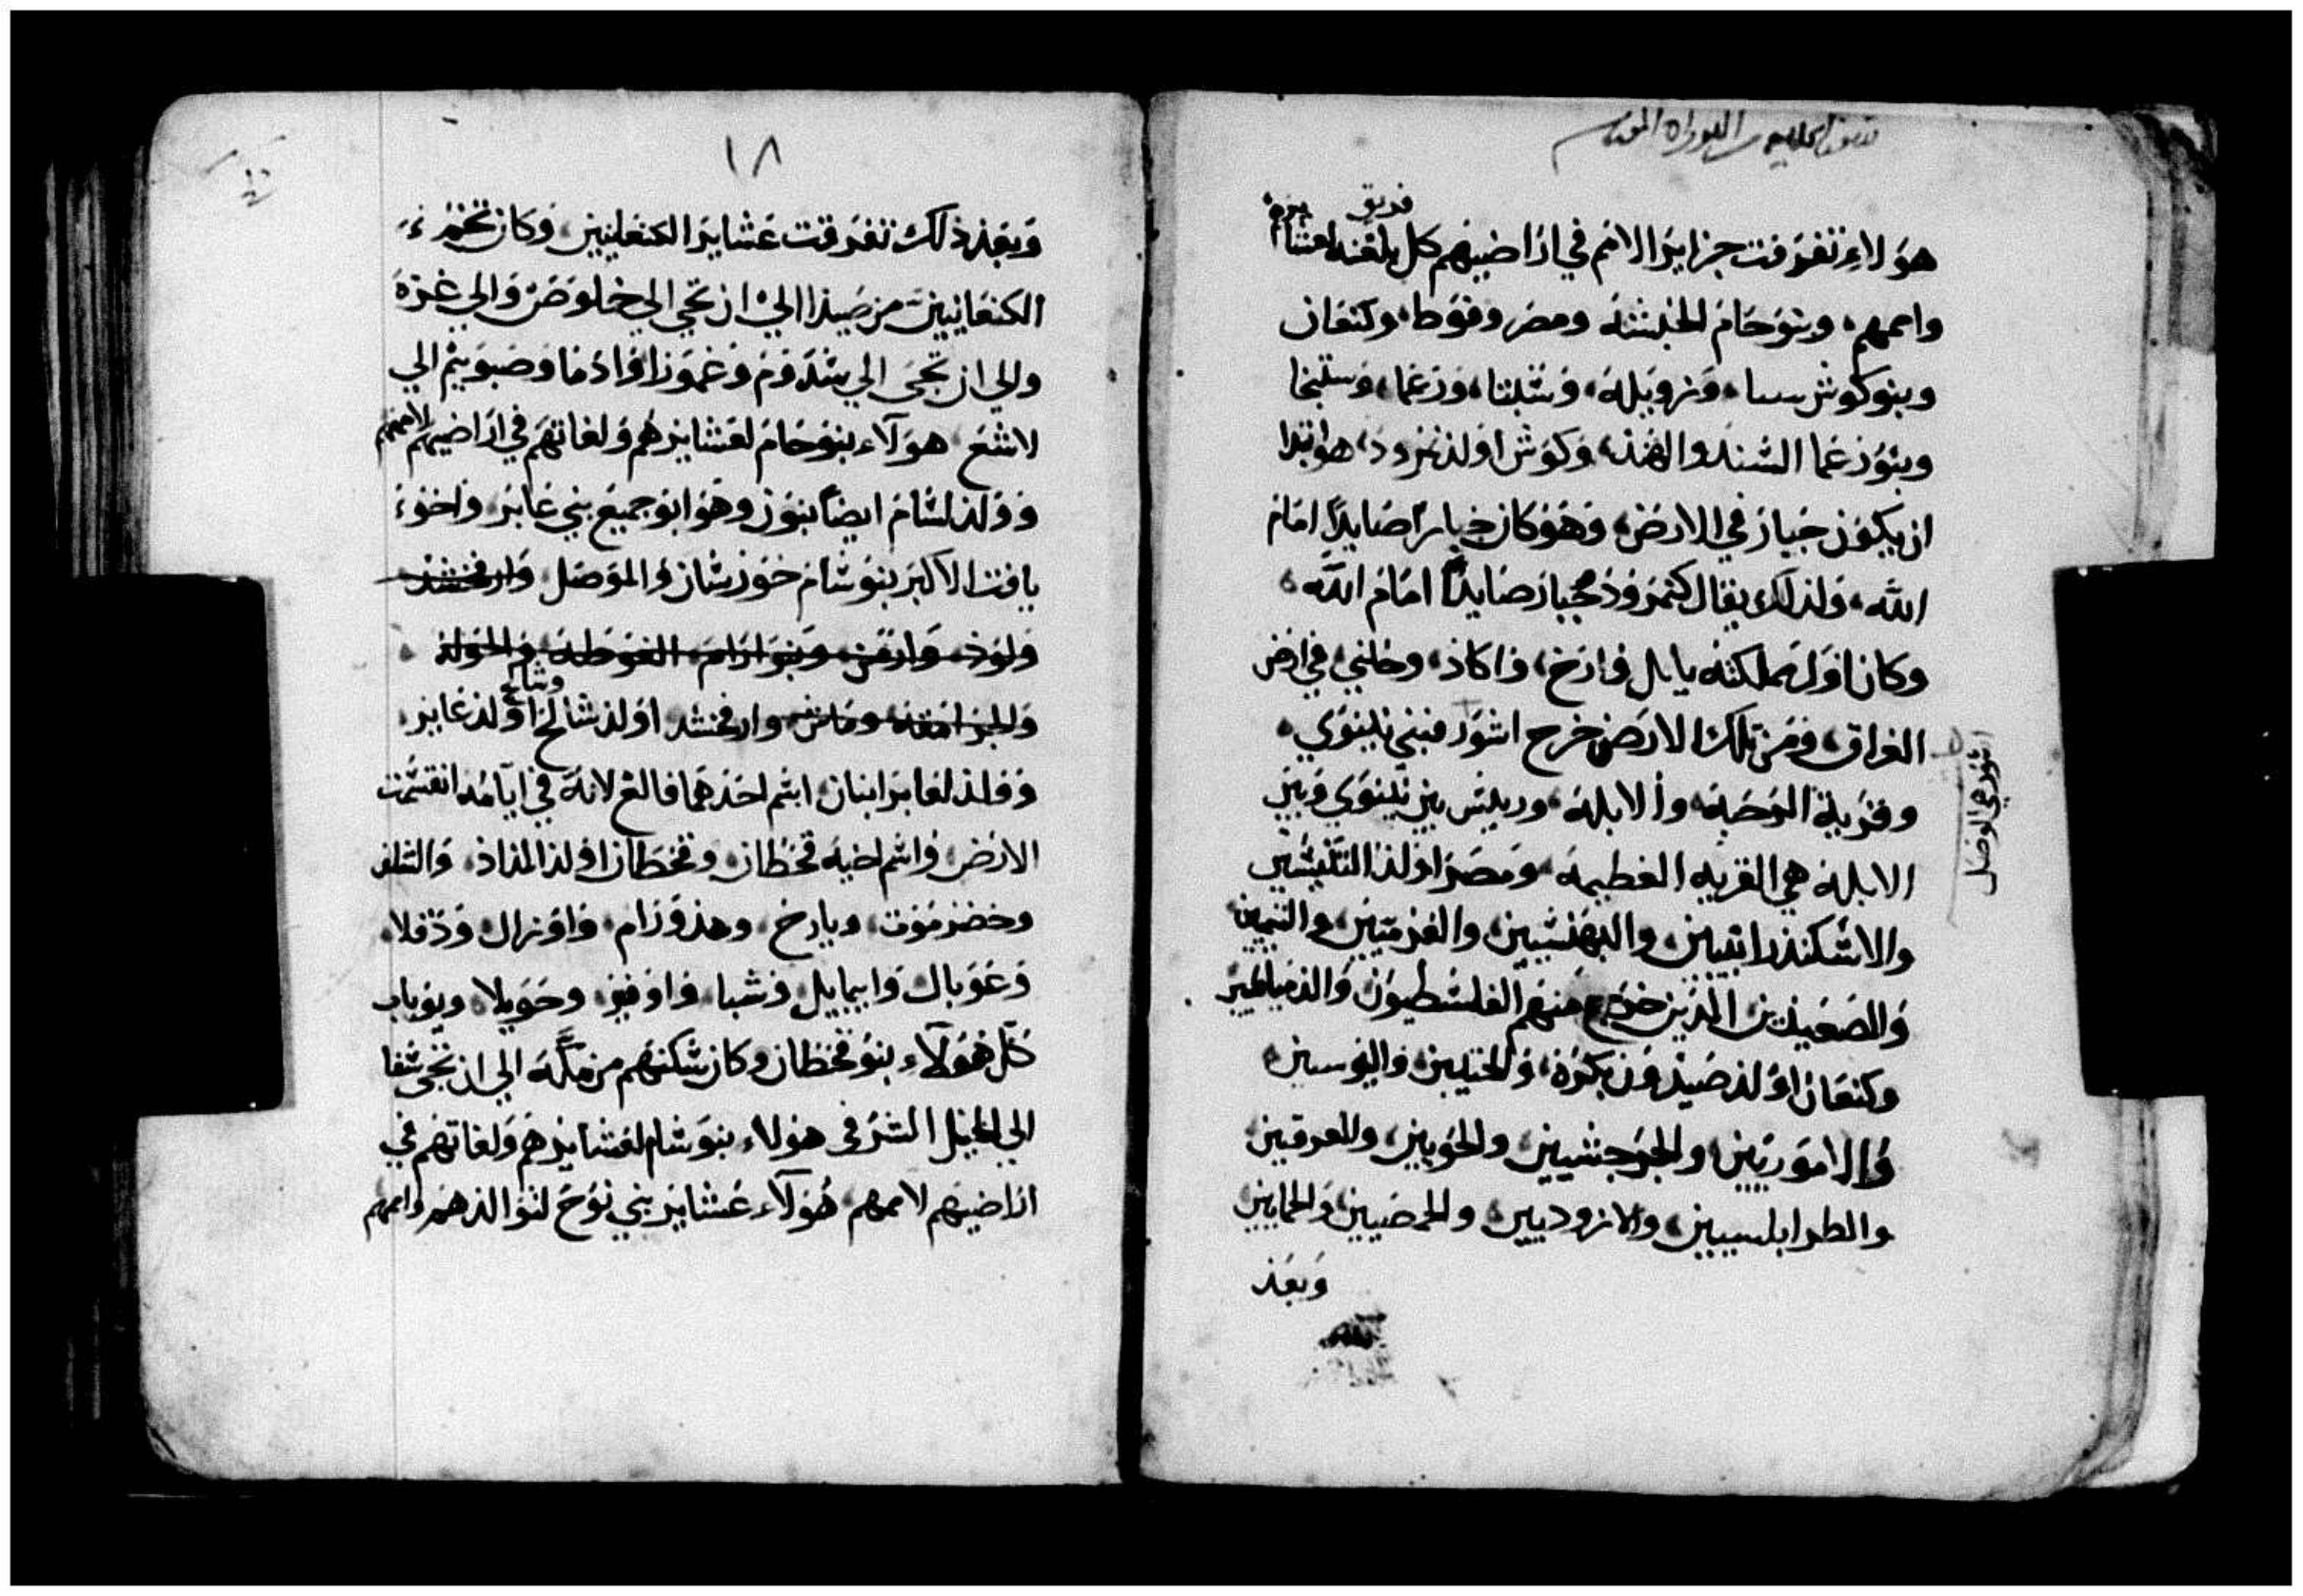 هولاء تفرقت جزاير الامم في اراضيهم كل فريق بلغته لعشايره
واممهم، وبنو حام الحبشه ومصر وفوط، وكنعان
وبنو كوش سبا، وزويله، وسبتا، ورعما، وسبتخا
وبنو رعما السند والهند، وكوش اولد نمرود، هو ابتدا
ان يكون جبار في الارض، وهو كان جبارا صايدا امام
الله، ولذلك يقال كنمرود جبار صايدا امام الله،
وكان اول مملكته بابل وارخ، واكاد، وخلني، في ارض
العراق، ومن تلك الارض خرج اشور فبني نينوي،
وقرية الرحبة، والابلة، وريسن بين نينوي وبين
الابلة هي القريه العظيمه، ومصر اولد التنيسين
والاسكندرانيين والبهنسيين والفرميين والبيمين
والصعيديين الذين خرج منهم الفلسطيون والدمياطين
وكنعان اولد صيدون بكره، والحتيين واليوسين
والاموريين، والجرجشيين والحويين والعرقين
والطرابلسيين، والازوديين والحمصيين والحمايين
وبعد
اشور هي الموصل
١٨
وبعد ذلك تفرقت عشاير الكنعانيين، وكان تخم
الكنعانيين من صيدا الي ان تجي الي خلوص والي غزة
والي ان تجي الي سدوم وغمورا وادما وصبويم الي
لاشع، هولاء بنو حام لعشايرهم ولغاتهم في اراضيهم لاممهم
وولد لسام ايضا بنون وهو ابو جميع بني عابر واخو
يافت الاكبر بنو سام خورستان والموصل وارفخشد
ولود، وارمن، وبنو ارام الغوطة والحولة
والجرامقة وماش وارفخشد اولد شالح وشالح اولد عابر،
وولد لعابر ابنان اسم احدهما فالغ لانه في ايامه انقسمت
الارض، واسم اخيه قحطان، وقحطان اولد المداد، والسلف
وحضرموت، ويارح، وهدورام، واوزال ودقلا،
وعوبال وابيمايل وشبا واوفير وحويلا ويوباب
كل هولاء بنو قحطان وكان سكنهم من مكه الي ان تجي سفا
الي الجبل الشرقي هولاء بنو سام لعشايرهم ولغاتهم في
اراضيهم لاممهم هولاء عشاير بني نوح لتوالدهم واممهم